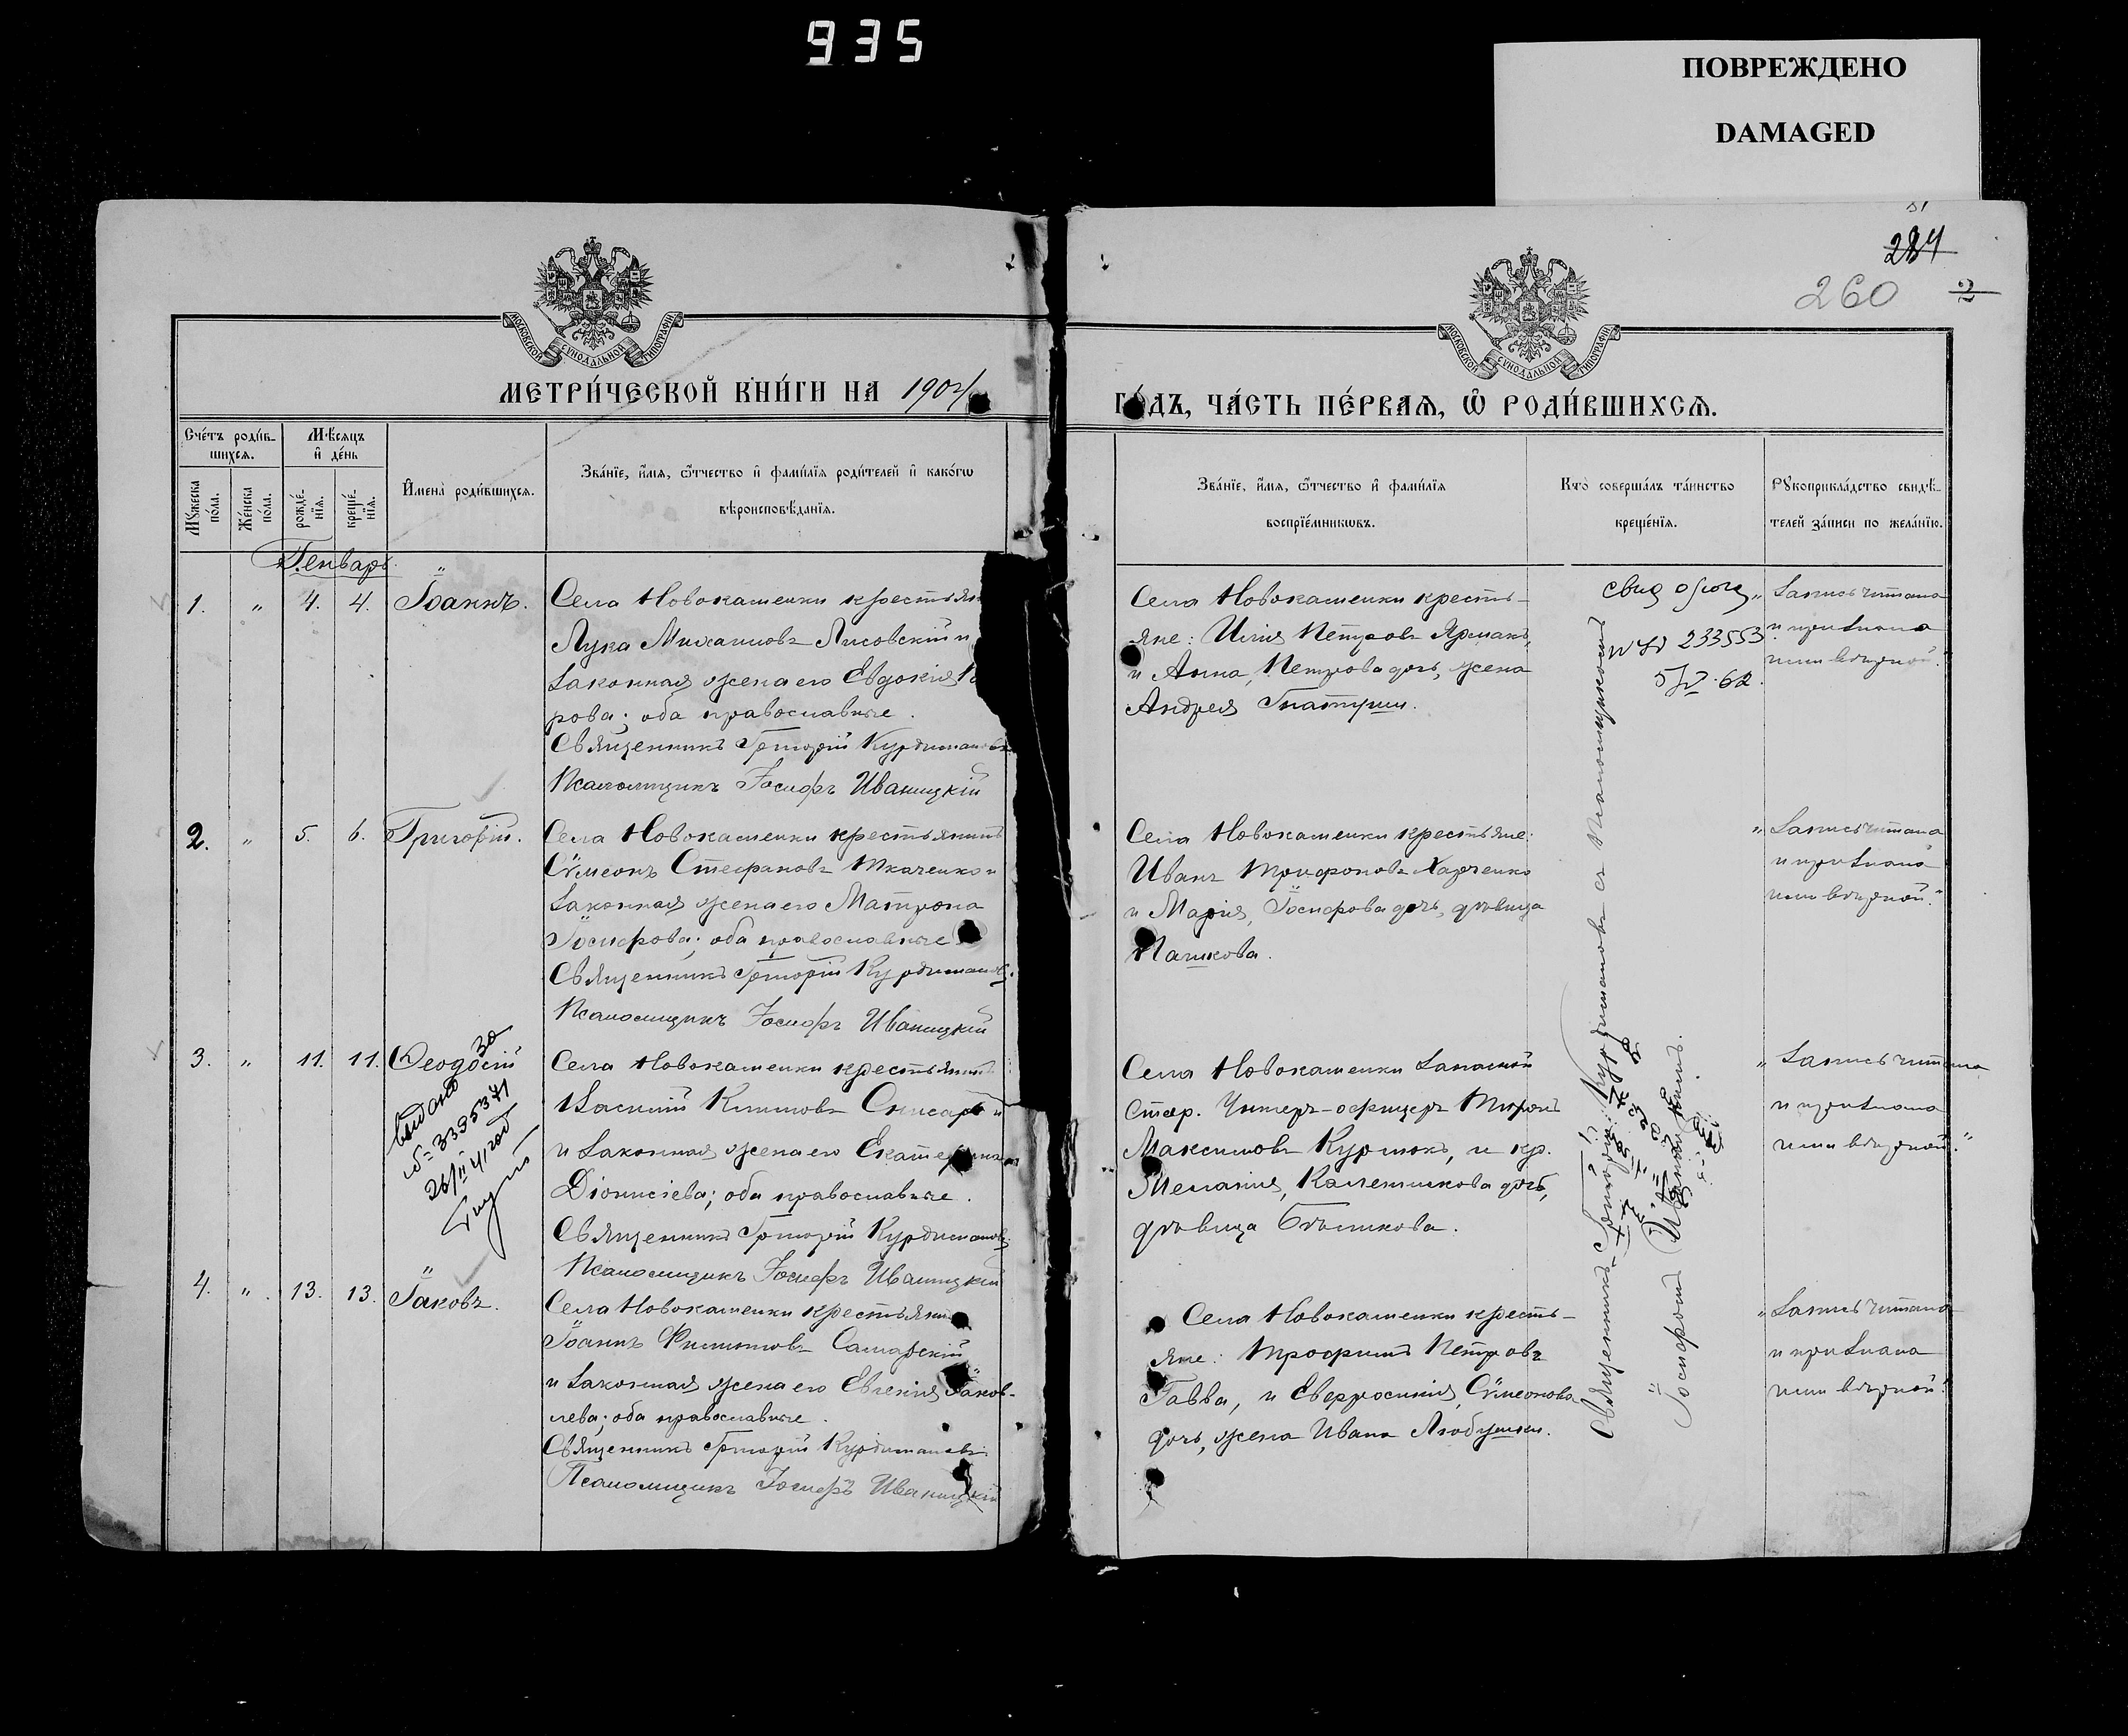 935
ПОВРЕЖДЕНО
DAMAGED
284
260
2
МОСКОВСКОЙ СѴНОДАЛЬНОЙ ТИПОГРАФІИ
МОСКОВСКОЙ СѴНОДАЛЬНОЙ ТИПОГРАФІИ
МЕТРИ́ЧЕСКОЙ КНИ́ГИ НА 1904
ГО́ДЪ, ЧА́СТЬ ПЕ́РВАѦ, Ѡ҆ РОДИ́ВШИХСѦ.
Сче́тъ роди́в-
шихсѧ.
Мѣ́сѧцъ
и҆ де́нь
Мꙋ́жеска по́ла.
Же́нска по́ла.
рожде́-нїѧ.
креще́-нїѧ.
И҆мена̀ роди́вшихсѧ.
Зва́нїе, и҆́мѧ, ѻ҆́тчество и҆ фами́лїѧ роди́телей и҆ како́гѡ
вѣроисповѣ́данїѧ.
Зва́нїе, и҆́мѧ, ѻ҆́тчество и҆ фами́лїѧ
воспрїе́мникѡвъ.
Кто̀ соверша́лъ та́инство
креще́нїѧ.
Рꙋкоприкла́дство свидѣ́-
телей за́писи по жела́нїю.
Генварь.
1. " 4. 4. Іоаннъ.
Села Новокаменки крестьян
Лука Михаиловъ Лисовскій и
законная жена его Евдокия
рова; оба православные.
Священникъ Григорій Курдимановъ
Псаломщикъ Іосифъ Иваницкій
Села Новокаменки кресть-
яне: Илия Петровъ Ярмакъ,
и Анна, Петрова дочь, жена
Андрея
свид
233553
5/IV.62.
„Запись читана
и признана
ими вѣрной."
2. " 5. 6. Григорій.
Села Новокаменки крестьянинъ
Сѵмеонъ Стефановъ Ткаченко и
законная жена его Матрона
Іосифова; оба православные
Священникъ Григорій Курдимановъ
Псаломщикъ Іосифъ Иваницкій
Села Новокаменки крестьяне:
Иванъ Трифоновъ Харченко
и Мария, Іосифова дочь, дѣвица
Пашкова.
„Запись читана
и признана
ими вѣрной."
3. " 11. 11. Ѳеодосій
Выдано
26/II 41 год
Села Новокаменки крестьянинъ
Василій Климовъ Снисаръ и
и законная жена его Екатерина
Діонисіева; оба православные.
Священникъ Григорій Курдимановъ
Псаломщикъ Іосифъ Иваницкій
Села Новокаменки запасной
стар. Унтеръ-офицеръ Миронъ
Максимовъ Курлюкъ, и кр.
Мелания, Каленикова дочь,
дѣвица
„Запись читана
и признана
ими вѣрной."
4. " 13. 13. Іаковъ.
Села Новокаменки крестьянинъ
Іоаннъ Филиповъ Самарскій
и законная жена его Евгения Іаков-
лева; оба православные.
Священникъ Григорій Курдимановъ
Псаломщикъ Іосифъ Иваницкій
Села Новокаменки кресть-
яне: Трофимъ Петровъ
Гавва, и Евфросиния, Сѵмеонова
дочь, жена Ивана
„Запись читана
и признана
ими вѣрной."
Священникъ Григорій Курдимановъ съ Псаломщикомъ
Іосифомъ Иваницкимъ.